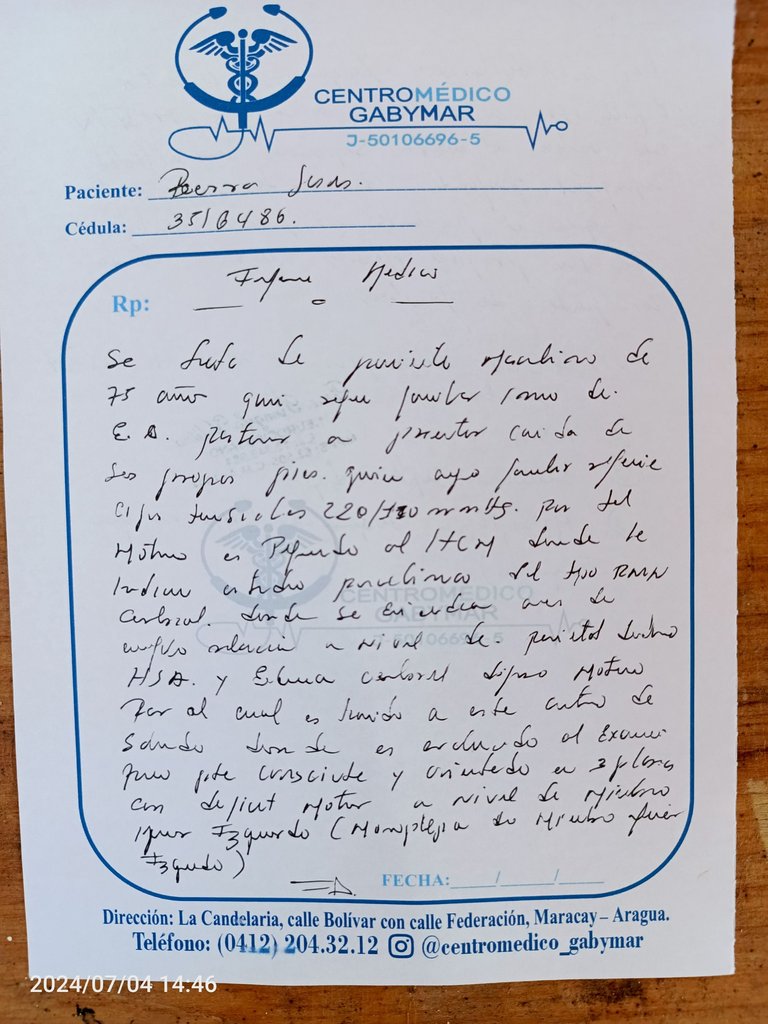 CENTROMÉDICO
GABYMAR
J-50106696-5
Paciente: Jesus.
Cédula: 3516486.
Informe Medico
Rp:
Se trata de paciente Masculino de
75 años quien refiere familiar inicio de
E.A. posterior a presentar caida de
sus propios pies. quien cuyo familiar refiere
cifras tensionales 220/110 mmHg. Por tal
Motivo es Referido al donde le
Indican estudio paraclinico del tipo RMN
Cerebral. donde se evidencia area de
a nivel de. parietal derecho
HSA. y Edema cerebral difuso Motivo
Por al cual es traido a este centro de
Salud donde es evaluado al Examen
pcte consciente y orientado en 3 planos
con deficit Motor a nivel de Miembro
Izquierdo (Monoplejia de Miembro
Izquierdo)
FECHA:____/____/____
Dirección: La Candelaria, calle Bolívar con calle Federación, Maracay – Aragua.
Teléfono: (0412) 204.32.12 @centromedico_gabymar
2024/07/04 14:46